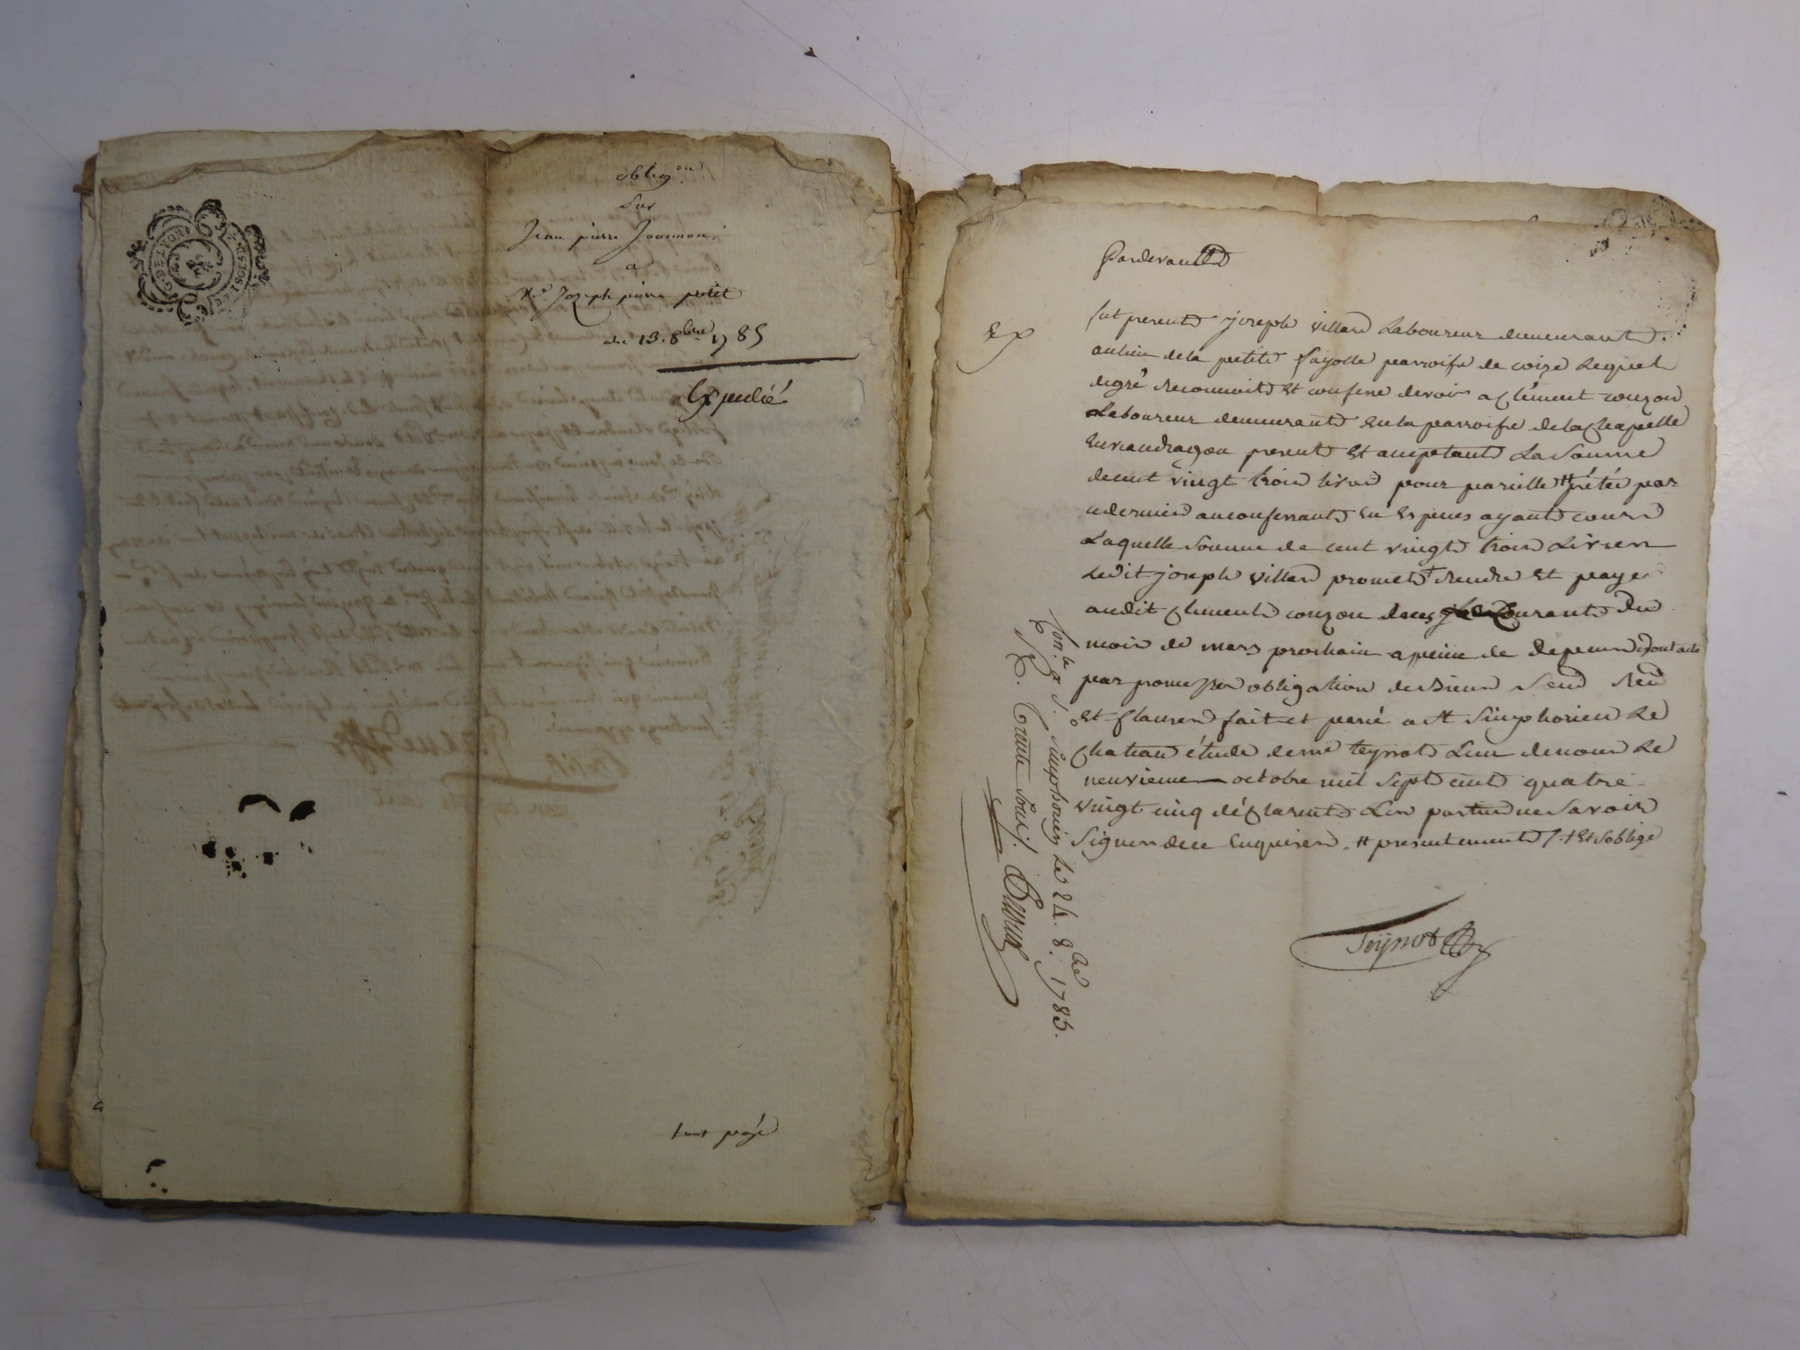 oblig.on
sur
Jean pierre
a
Joseph pierre petit
du 13. 8bre 1785
Expedié
tout payé
Pardevant
Ex
fut present joseph villard Laboureur demeurant
au lieu de la petite fayolle parroisse de coize Lequel
de gré reconnoit et confesse devoir a Clément couzon
Laboureur demeurant en la parroisse de la Chapelle
en vaudragon present et acceptant La somme
de cent vingt trois livres pour pareille # prétée par
ce dernier au confessant en Especes ayant cours
Laquelle somme de cent vingt trois Livres
Ledit joseph villard promet + rendre et payer
audit Clement couzon dans le Courant du
mois de mars prochain a peine de depens dont acte
par promesses obligation de biens soumd rend
et clauses fait et passé a st Simphorien le
Chateau étude de me teynot L'un de nous Le
neuvieme octobre mil sept cent quatre
vingt cinq déclarent Les parties ne savoir
signer de ce Enquises. # presentement /. + Et s'oblige
Teynot
Con.lé a S. Simphorien le 24. 8bre 1785.
R. trente sous ./.